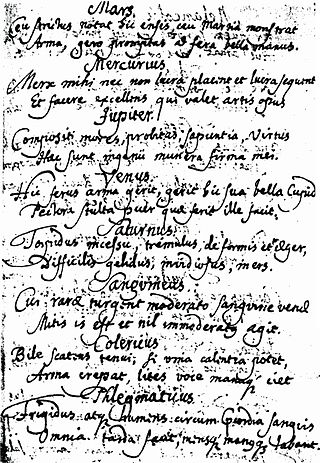 Mars
Cu Arietus notat hic ensis, ceu Marsia monstrat
Arma, gero promptas ad fera bella manus.
Mercurius
Merx mihi nec non lucra placent et lucra sequunt
Et facere excellens qui valet artis opus
Jupiter
Compositi mores, probitas, sapientia, virtus
Haec sunt ingenii munera firma mei.
Venus
Hic ferus arma gerit, gerit hic sua bella Cupid
Pectora stulta puer quae ferit ille facit.
Saturnus
Torpidus incessu, tremulus, deformis et aeger,
Difficilis gelidus, invidiosus, iners.
Sanguineus
Cui rarae turgent moderato sanguine venae
Mitis is est et nil immoderatum agit.
Colericus
Bile scatens tenui, si vina calentia potet,
Arma crepat, lites voce manuq ciet
Phlegmaticus
Frigidus atq humens circum praecordia sanguis
Omnia tarda facit, mensq manusq labant.